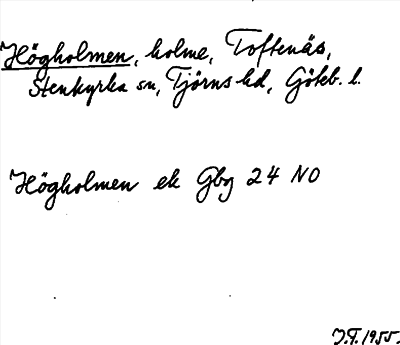 Högholmen, holme, Toftenäs,
Stenkyrka sn, Tjörns hd, Göteb. l.
Högholmen ek Gbg 24 NO
J.T. 1955.